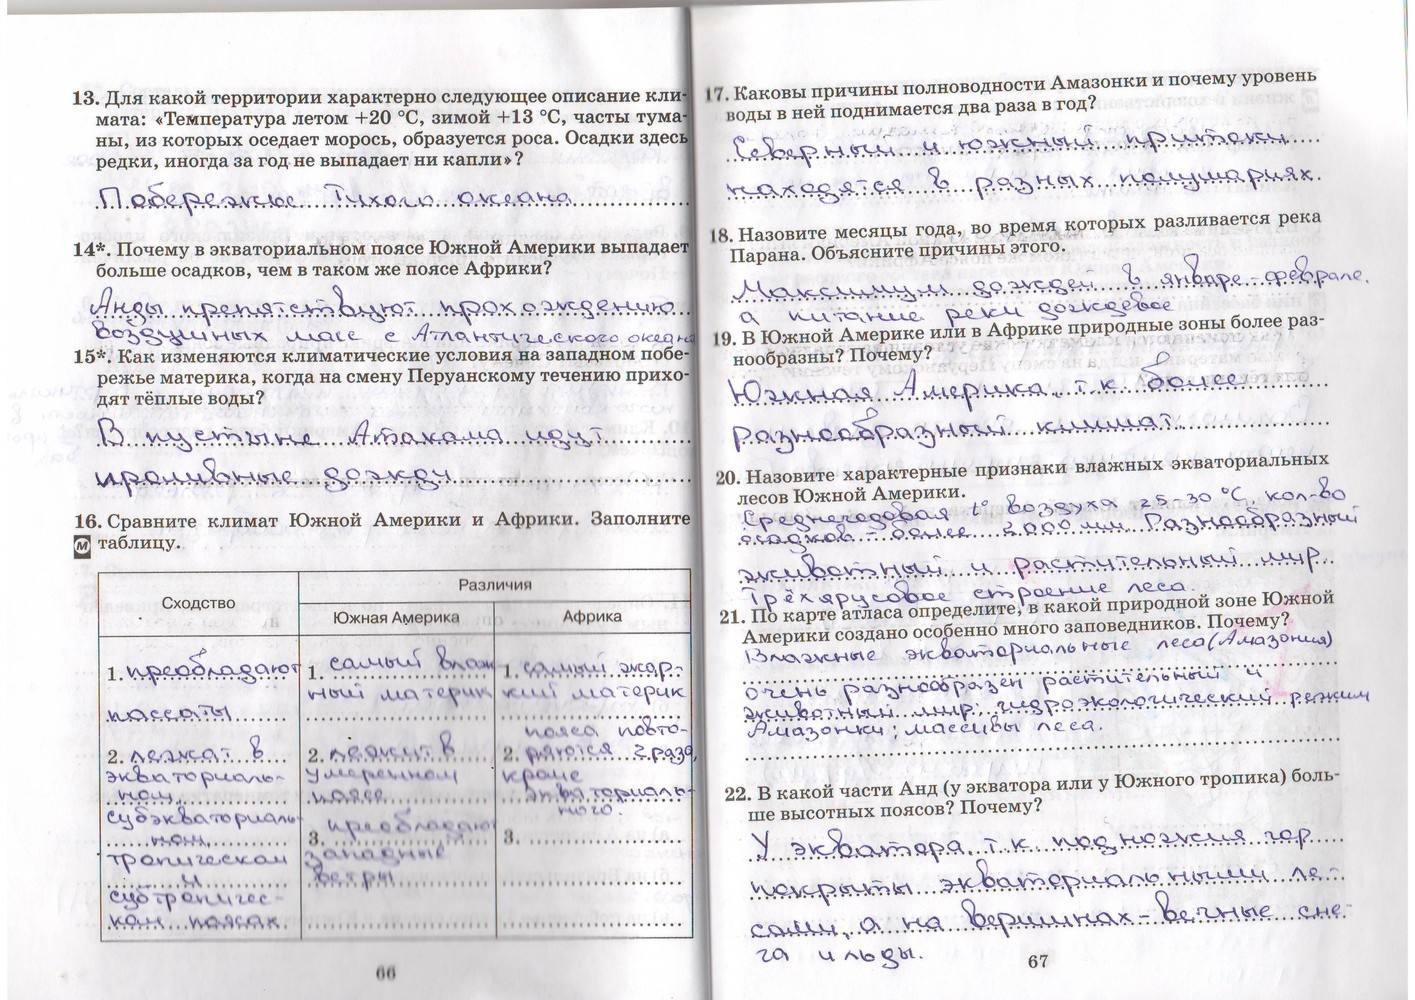 13. Для какой территории характерно следующее описание кли-
мата: «Температура летом +20 °С, зимой +13 °С, часты тума-
ны, из которых оседает морось, образуется роса. Осадки здесь
редки, иногда за год не выпадает ни капли»?
Побережье Тихого океана
14*. Почему в экваториальном поясе Южной Америки выпадает
больше осадков, чем в таком же поясе Африки?
Анды препятствуют прохождению
воздушных масс с Атлантического океана
15*. Как изменяются климатические условия на западном побе-
режье материка, когда на смену Перуанскому течению прихо-
дят тёплые воды?
В пустыне Атакама идут
проливные дожди
16. Сравните климат Южной Америки и Африки. Заполните
м таблицу.
Сходство
Различия
Южная Америка
Африка
1. преобладают
пассаты
2. лежат в
экваториаль-
ном,
субэкваториаль-
ном,
тропическом
и
субтропичес-
ком поясах
1. самый влаж-
ный материк
2. лежит в
умеренном
поясе
3. преобладают
западные
ветры
1. самый жар-
кий материк
пояса повто-
2. ряются 2 раза,
кроме
экваториаль-
ного.
3.
66
17. Каковы причины полноводности Амазонки и почему уровень
воды в ней поднимается два раза в год?
Северный и южный притоки
находятся в разных полушариях.
18. Назовите месяцы года, во время которых разливается река
Парана. Объясните причины этого.
Максимум дождей в январе-феврале.
а питание реки дождевое
19. В Южной Америке или в Африке природные зоны более раз-
нообразны? Почему?
Южная Америка, т.к. более
разнообразный климат
20. Назовите характерные признаки влажных экваториальных
лесов Южной Америки.
Среднегодовая t° воздуха 25-30 °С, кол-во
осадков - более 2000 мм. Разнообразный
животный и растительный мир.
Трёхярусовое строение леса.
21. По карте атласа определите, в какой природной зоне Южной
Америки создано особенно много заповедников. Почему?
Влажные экваториальные леса (Амазония)
очень разнообразен растительный и
животный мир; гидроэкологический режим
Амазонки; массивы леса.
22. В какой части Анд (у экватора или у Южного тропика) боль-
ше высотных поясов? Почему?
У экватора, т.к подножия гор
покрыты экваториальными ле-
сами, а на вершинах - вечные сне-
га и льды.
67